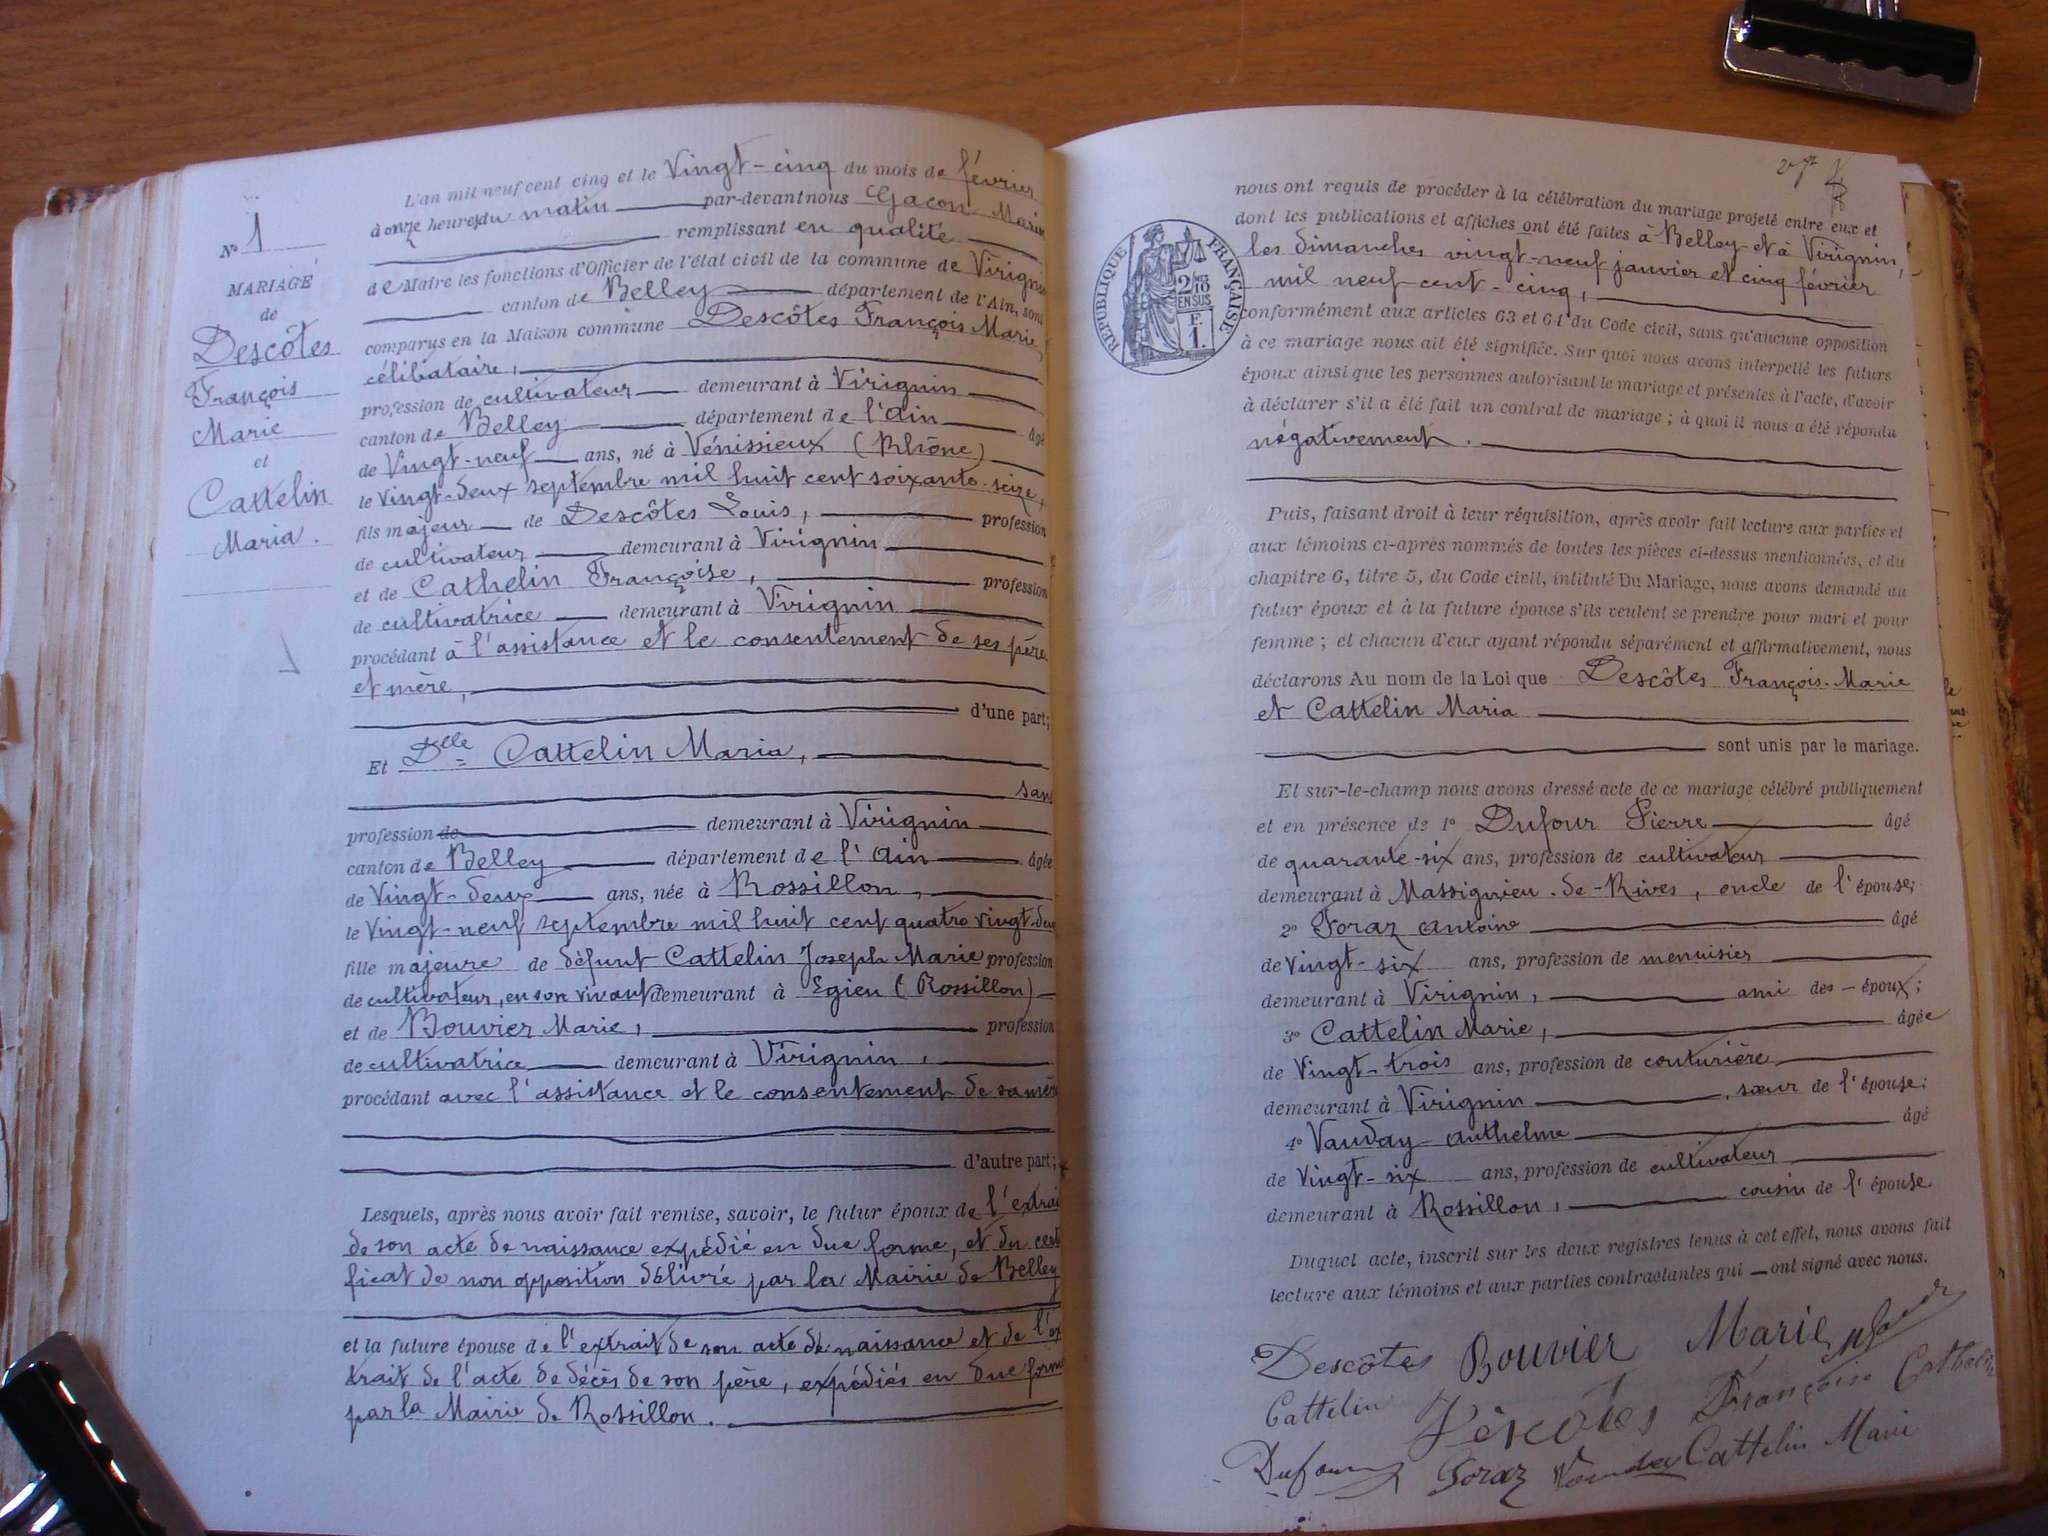 N° 1
MARIAGE
de
Descôtes
François
Marie
et
Cattelin
Maria.
L'an mil neuf cent cinq et le Vingt-cinq du mois de février
à onze heures du matin par-devant nous Gacon Marin
remplissant en qualité
de Maire les fonctions d'Officier de l'état civil de la commune de Virignin
canton de Belley département de l'Ain, sont
comparus en la Maison commune Descôtes François Marie,
célibataire,
profession de cultivateur demeurant à Virignin
canton de Belley département de l'Ain âgé
de Vingt-neuf ans, né à Vénissieux (Rhône)
le vingt-deux septembre mil huit cent soixante-seize,
fils majeur de Descôtes Louis, profession
de cultivateur demeurant à Virignin
et de Cathelin Françoise, profession
de cultivatrice demeurant à Virignin
procédant à l'assistance et le consentement de ses père
et mère,
d'une part;
Et Dlle Cattelin Maria,
sans
profession de demeurant à Virignin
canton de Belley département de l'Ain âgée
de Vingt-deux ans, née à Rossillon,
le Vingt-neuf septembre mil huit cent quatre vingt-deux
fille majeure de défunt Cattelin Joseph Marie profession
de cultivateur, en son vivant demeurant à Egieu (Rossillon)
et de Bouvier Marie, profession
de cultivatrice demeurant à Virignin,
procédant avec l'assistance et le consentement de sa mère
d'autre part;
Lesquels, après nous avoir fait remise, savoir, le futur époux de l'extrait
de son acte de naissance expédié en due forme, et du certi
ficat de non opposition délivré par la Mairie de Belley
et la future épouse de l'extrait de son acte de naissance et de l'ex
trait de l'acte de décès de son père, expédiés en due forme
par la Mairie de Rossillon.
nous ont requis de procéder à la célébration du mariage projeté entre eux et
dont les publications et affiches ont été faites à Belley et à Virignin,
les dimanches vingt-neuf janvier et cinq février
mil neuf cent-cinq,
conformément aux articles 63 et 64 du Code civil, sans qu'aucune opposition
à ce mariage nous ait été signifiée. Sur quoi nous avons interpellé les futurs
époux ainsi que les personnes autorisant le mariage et présentes à l'acte, d'avoir
à déclarer s'il a été fait un contrat de mariage; à quoi il nous a été répondu
négativement.
RÉPUBLIQUE FRANÇAISE
2/10
EN SUS
F.
1.
Puis, faisant droit à leur réquisition, après avoir fait lecture aux parties et
aux témoins ci-après nommés de toutes les pièces ci-dessus mentionnées, et du
chapitre 6, titre 5, du Code civil, intitulé Du Mariage, nous avons demandé au
futur époux et à la future épouse s'ils veulent se prendre pour mari et pour
femme; et chacun d'eux ayant répondu séparément et affirmativement, nous
déclarons Au nom de la Loi que Descôtes François-Marie
et Cattelin Maria
sont unis par le mariage.
Et sur-le-champ nous avons dressé acte de ce mariage célébré publiquement
et en présence de 1° Dufour Pierre âgé
de quarante-six ans, profession de cultivateur
demeurant à Massignieu-de-Rives, oncle de l'épouse;
2° Foraz Antoine âgé
de Vingt-six ans, profession de menuisier
demeurant à Virignin, ami des époux;
3° Cattelin Marie, âgée
de Vingt-trois ans, profession de couturière
demeurant à Virignin, sœur de l'épouse;
4° Vauday Anthelme âgé
de Vingt-six ans, profession de cultivateur
demeurant à Rossillon, cousin de l'épouse.
Duquel acte, inscrit sur les deux registres tenus à cet effet, nous avons fait
lecture aux témoins et aux parties contractantes qui ont signé avec nous.
Descôtes Bouvier Marie
Cattelin Descotes Françoise Cathelin
Dufour Foraz Vauday Cattelin Marie